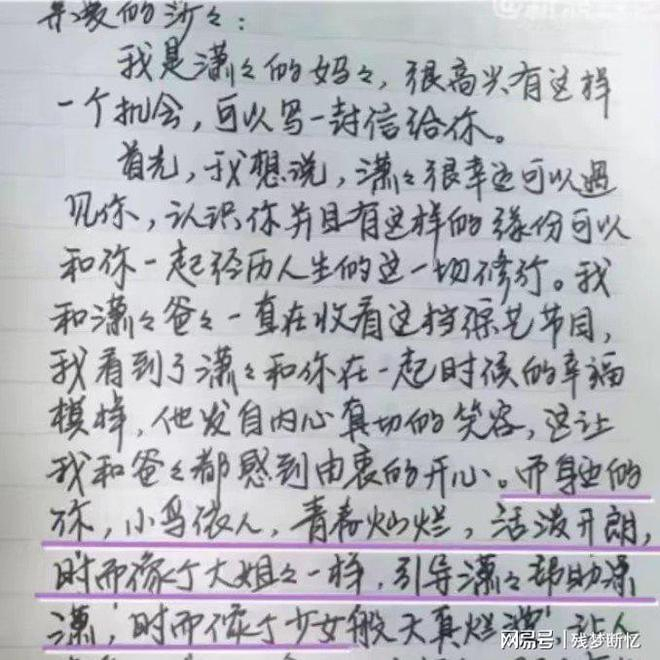 亲爱的沙々:
我是潇々的妈々,很高兴有这样
一个机会,可以写一封信给你。
首先,我想说,潇々很幸运可以遇
见你,认识你并且有这样的缘份可以
和你一起经历人生的这一切修行。我
和潇々爸々一直在收看这档综艺节目,
我看到了潇々和你在一起时候的幸福
模样,他发自内心真切的笑容,这让
我和爸々都感到由衷的开心。而身边的
你,小鸟依人,青春灿烂,活泼开朗,
时而像个大姐々一样,引导潇々帮助潇
潇,时而像个少女般天真烂漫,让人
网易号 | 残梦断忆